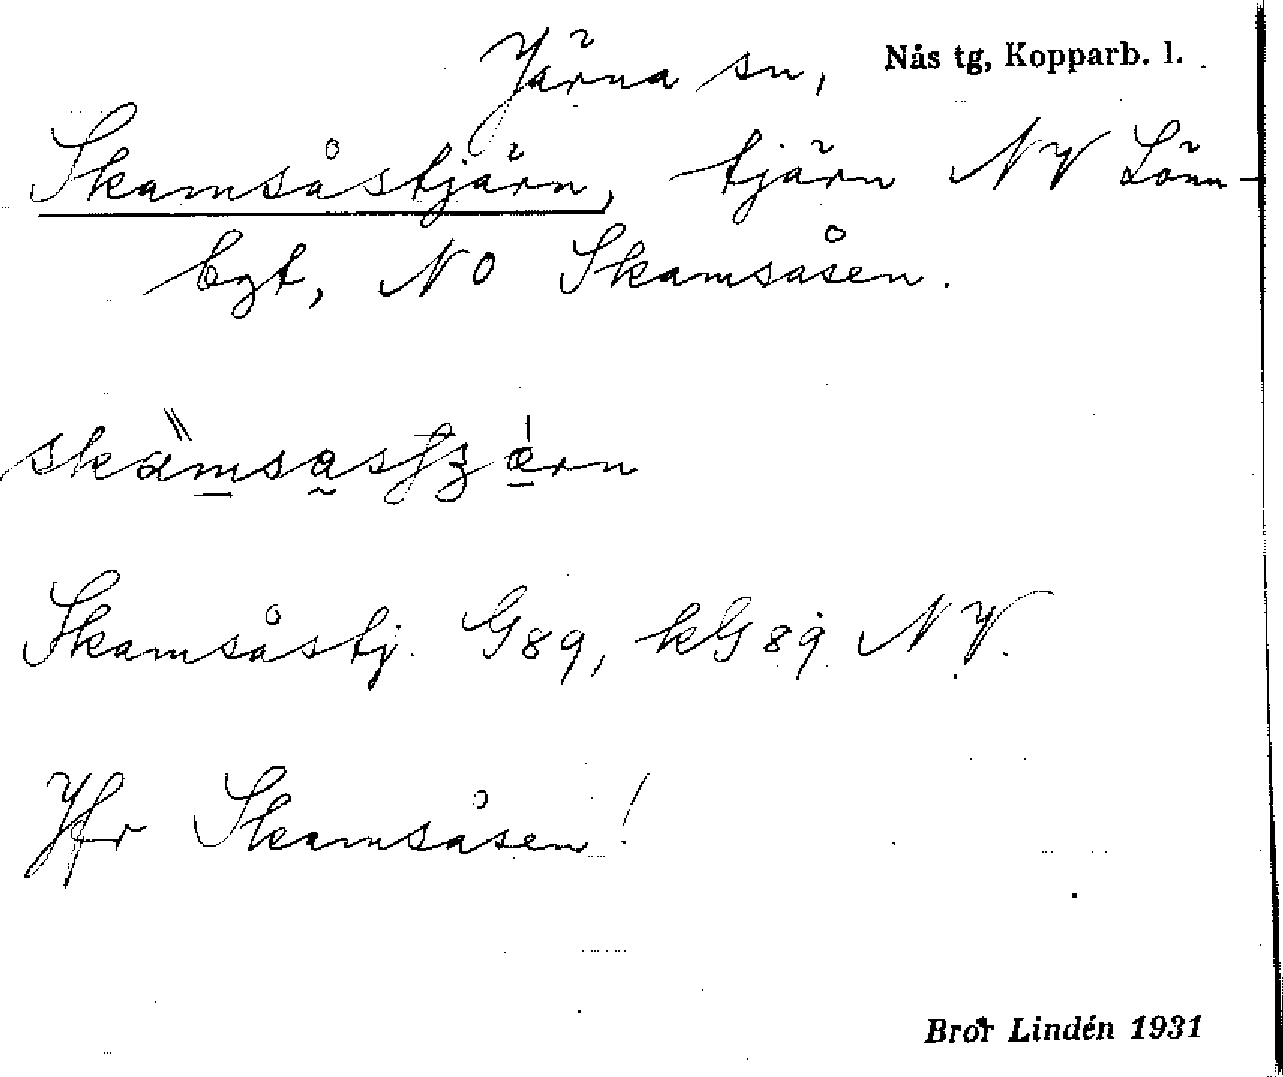 Järna sn, Nås tg, Kopparb. l.
Skamsåstjärn, tjärn NV Lönn-
bgt, NO Skamsåsen.
Skamsåstj. G89, kG89 NV.
Jfr Skamsåsen!
Bror Lindén 1931